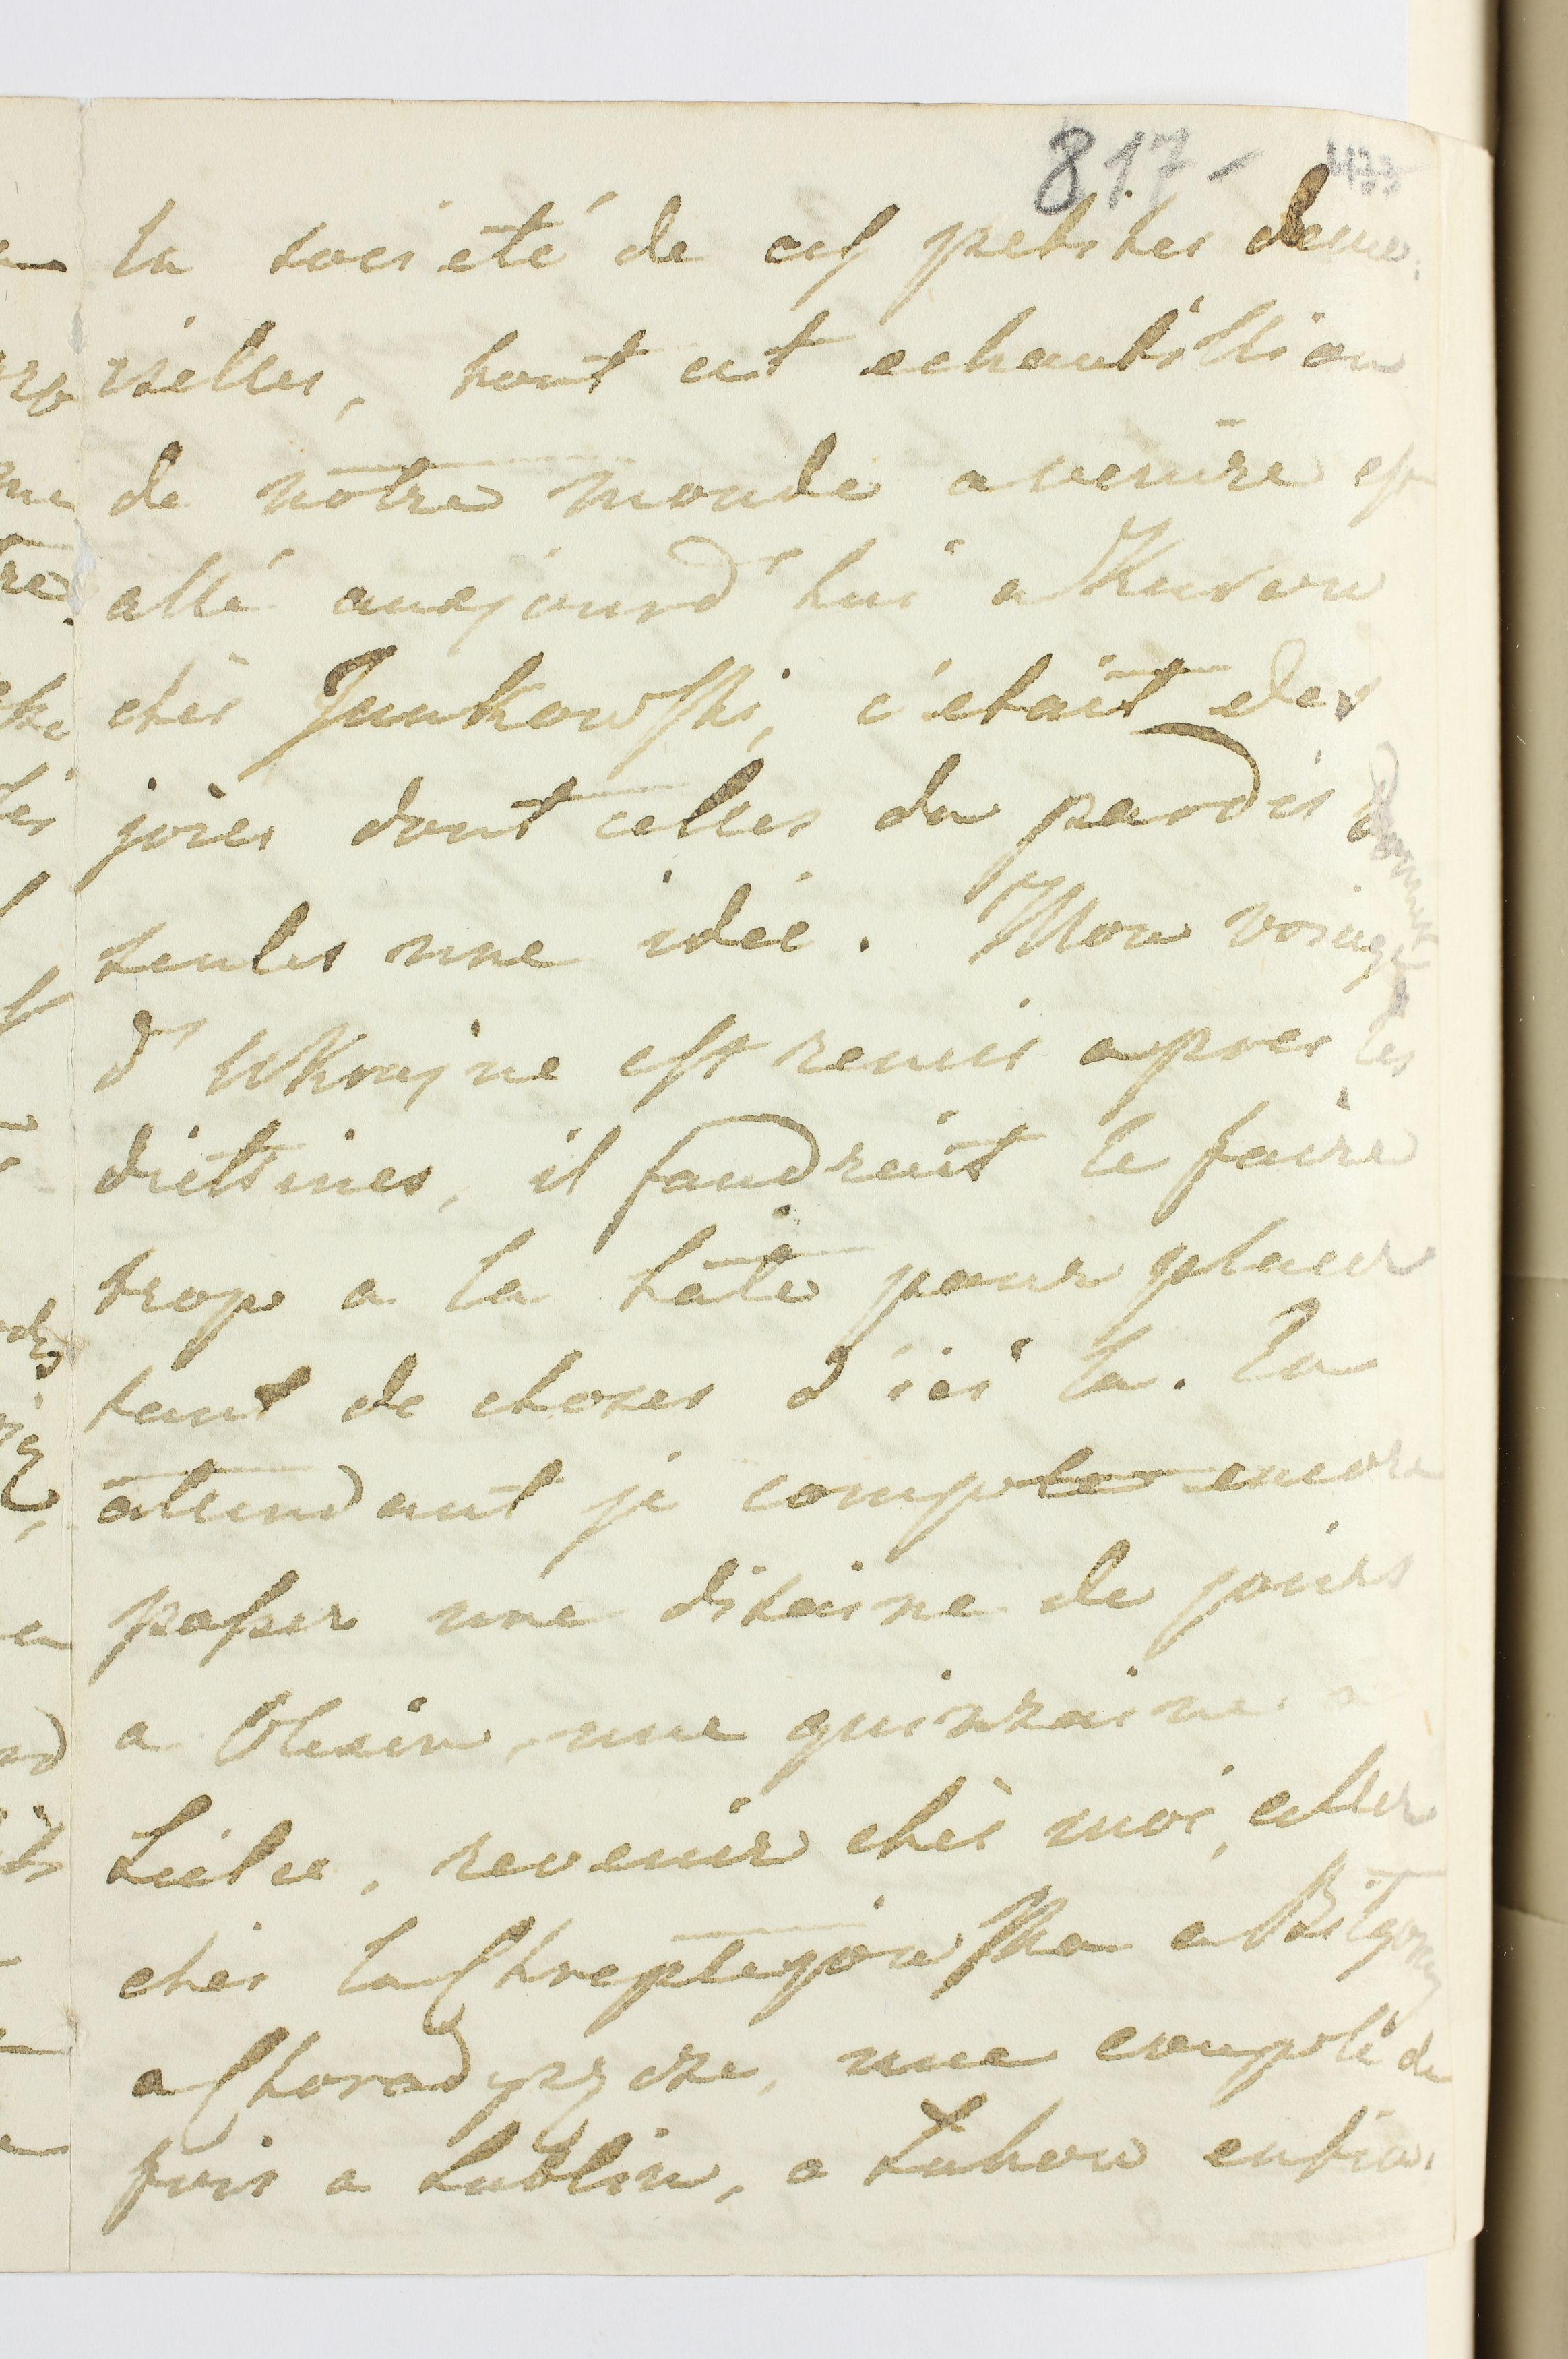 817-
la societé de ces petites demoi
sielles, tout cet echantillion
de nôtre monde a venire est
allé auajourd'hui a Kurow
chés Jankowski, c'etait des
joies dont celles du paradis donnent
seules une idée. Mon voiage
d'Ukrajne est remis apres les
diettines, il faudrait le faire
trop a la hâte pour placer
tant de choses d'ici la. En
attendant je compte encore
passer une disaine de jours
a Olexin, une quinzaine a
Sielce, revenir chés moi, aller
chés la Chreptyjowska a Bilgoray
a Choradyszcze, une couple de
fois a Lublin, a Lukow enfin